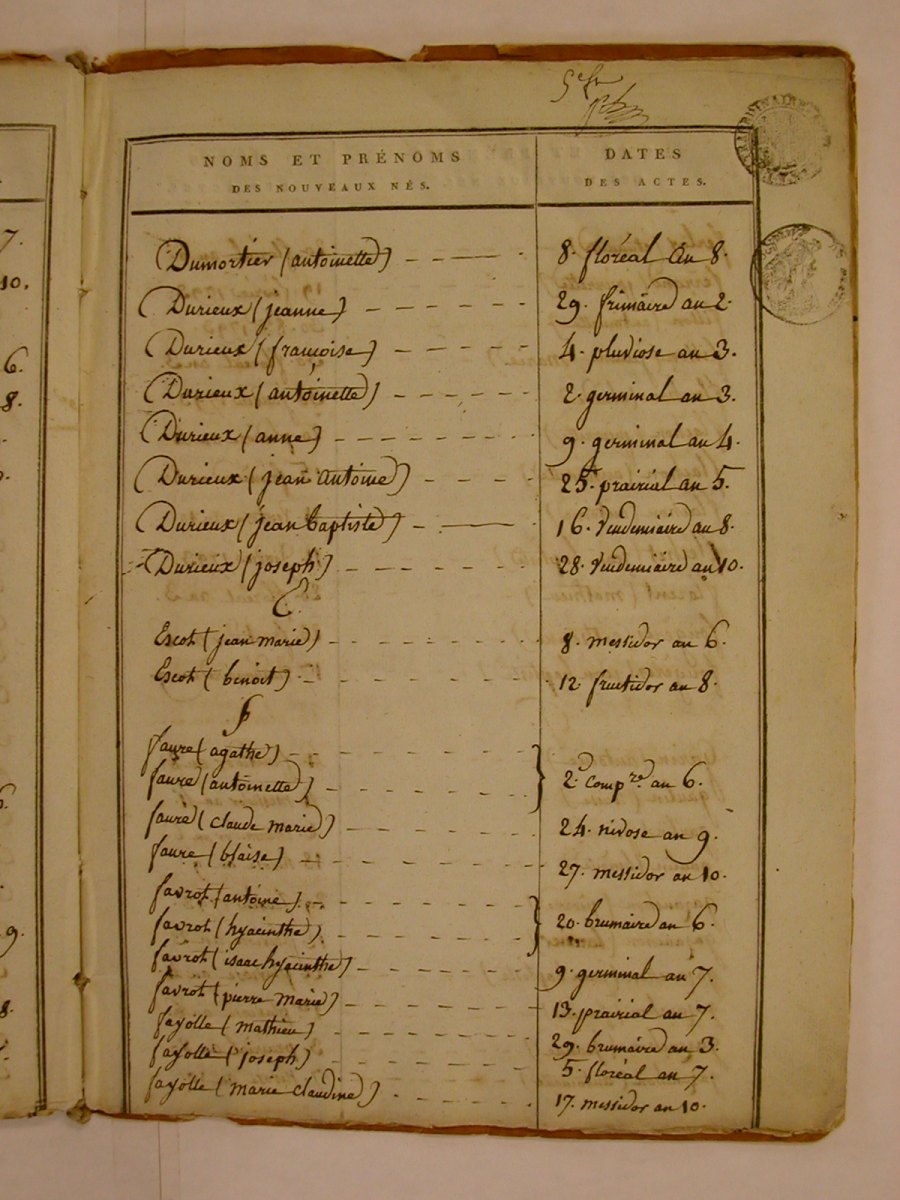 NOMS ET PRÉNOMS
DES NOUVEAUX NÉS.
DATES
DES ACTES.
Dumortier (antoinette) 8. floréal An 8.
Durieux (jeanne) 29. frimaire an 2.
Durieux (françoise) 4. pluviose an 3.
Durieux (antoinette) 2 germinal an 3.
Durieux (anne) 9. germinal an 4.
Durieux (jean antoine) 25. prairial an 5.
Durieux (jean baptiste) 16. Vendemiaire an 8.
Durieux (joseph) 28. Vendemiaire an 10.
E.
Escot (jean marie) 8. messidor an 6.
Escot (benoit) 12. fructidor an 8.
f
faure (agathe)
faure (antoinette) 2.d Comp.re an 6.
faure (claude marie) 24. nivose an 9.
faure (blaise) 27. messidor an 10.
favrot (antoine)
favrot (hyacinthe) 20. brumaire an 6.
favrot (isaac hyacinthe) 9. germinal an 7.
favrot (pierre marie) 13. prairial an 7.
fayolle (mathieu) 29. brumaire an 3.
fayolle (joseph) 5. floréal an 7.
fayolle (marie claudine) 17. messidor an 10.
7.
10.
6.
8.
9.
8.